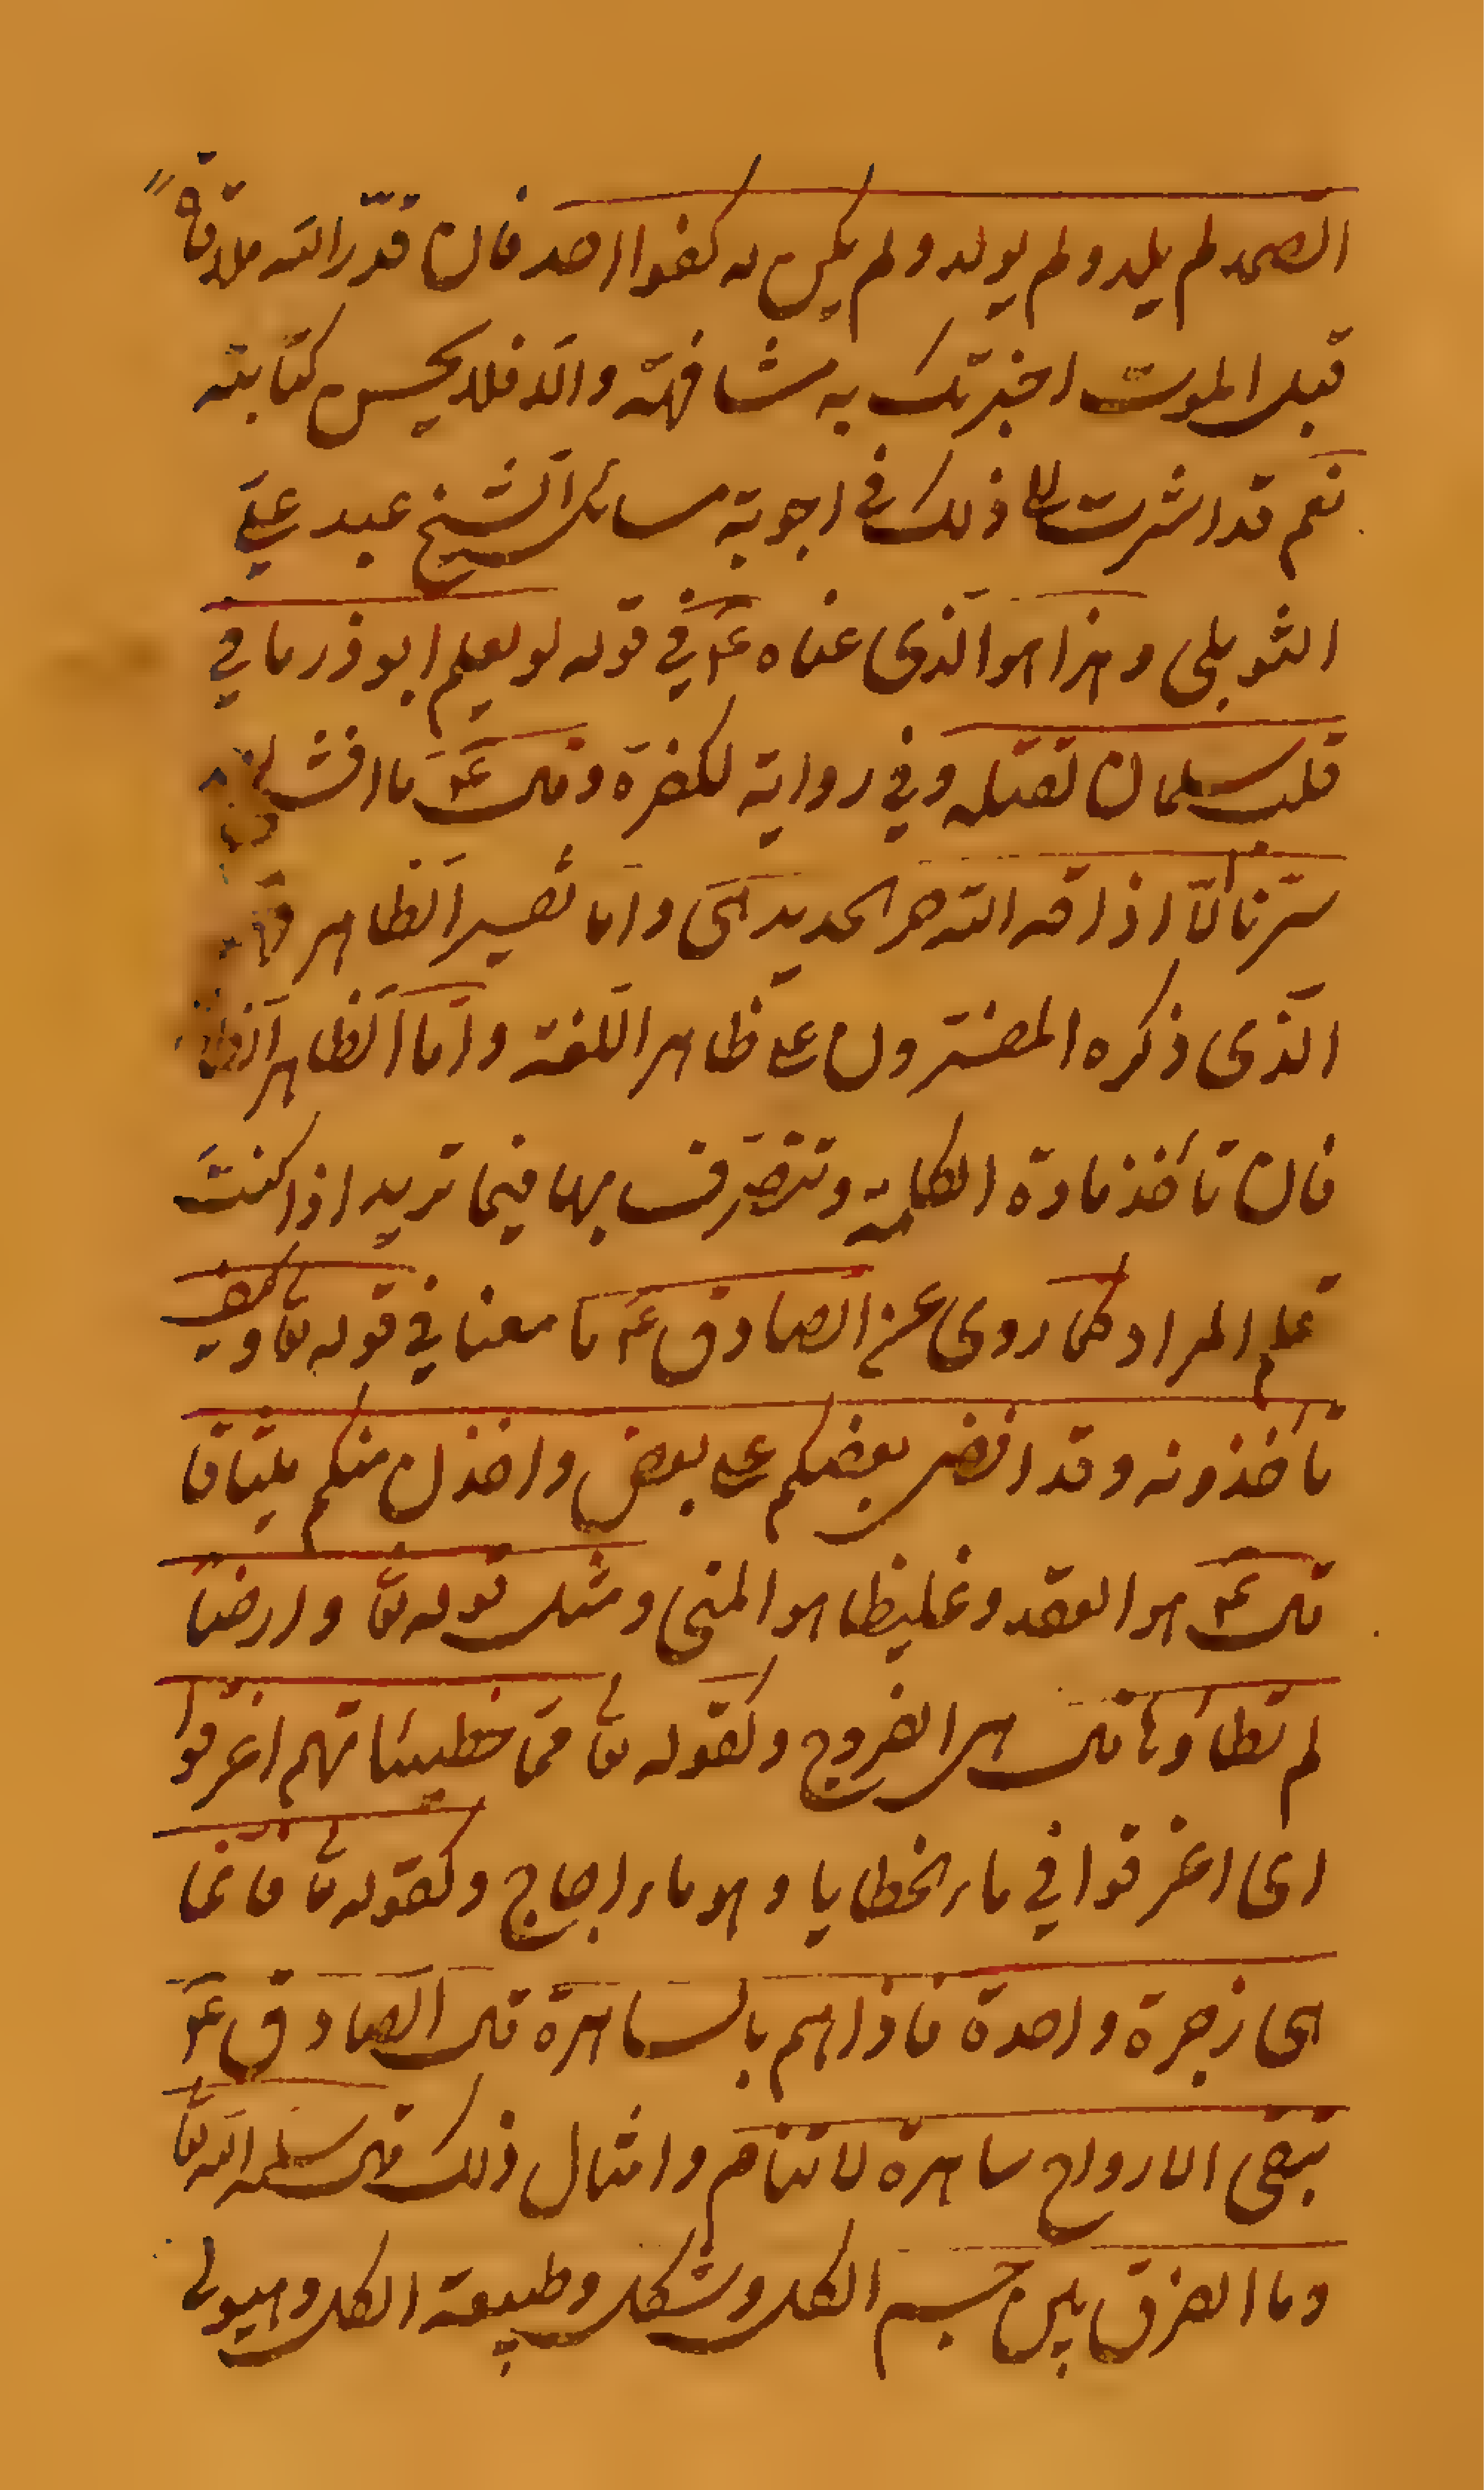 الصمد لم يلد ولم يولد ولم يكن له كفوا احد فان قدّر الله ملاقاة
قبل الموت اخبرتك به مشافهة والّا فلا يحسن كتابته
نعم قد اشرت الى ذلك في اجوبة مسائل الشيخ عبد علي
التوبلي وهذا هو الذي عناه ع۴ في قوله لو يعلم ابوذر ما في
قلب سلمان لقتله وفي رواية لكفره وقال ع۴ ما افشى
سرّنا الّا اذاقه الله حر الحديد الخ واما تفسير الظاهر فهو
الّذي ذكره المفسّرون على ظاهر اللّغة وامّا الظاهر الظاهر
فان تأخذ مادة الكلمة وتتصرّف بها فيما تريد اذا كنت
تعلم المراد كما روي عن الصادق ع۴ ما معنا في قوله تعا وكيف
تأخذونه وقد افضى بعضكم على بعض واخذن منكم ميثاقا
قال ع۴ هو العقد وغليظا هو المني ومثل قوله تعا وارضا
لم تطاؤها قال هي الفروج وكقوله تعا ممّا خطيئاتهم اغرقوا
اى اغرقوا في ماء الخطايا وهو ماء اجاج وكقوله تعا فانّما
هى زجرة واحدة فاذا هم بالساهرة قال الصادق ع۴
تبقى الارواح ساهرة لا تنام وامثال ذلك قال سلمه الله تعا
وما الفرق بين جسم الكل وشكل وطبيعة الكل وهيولى